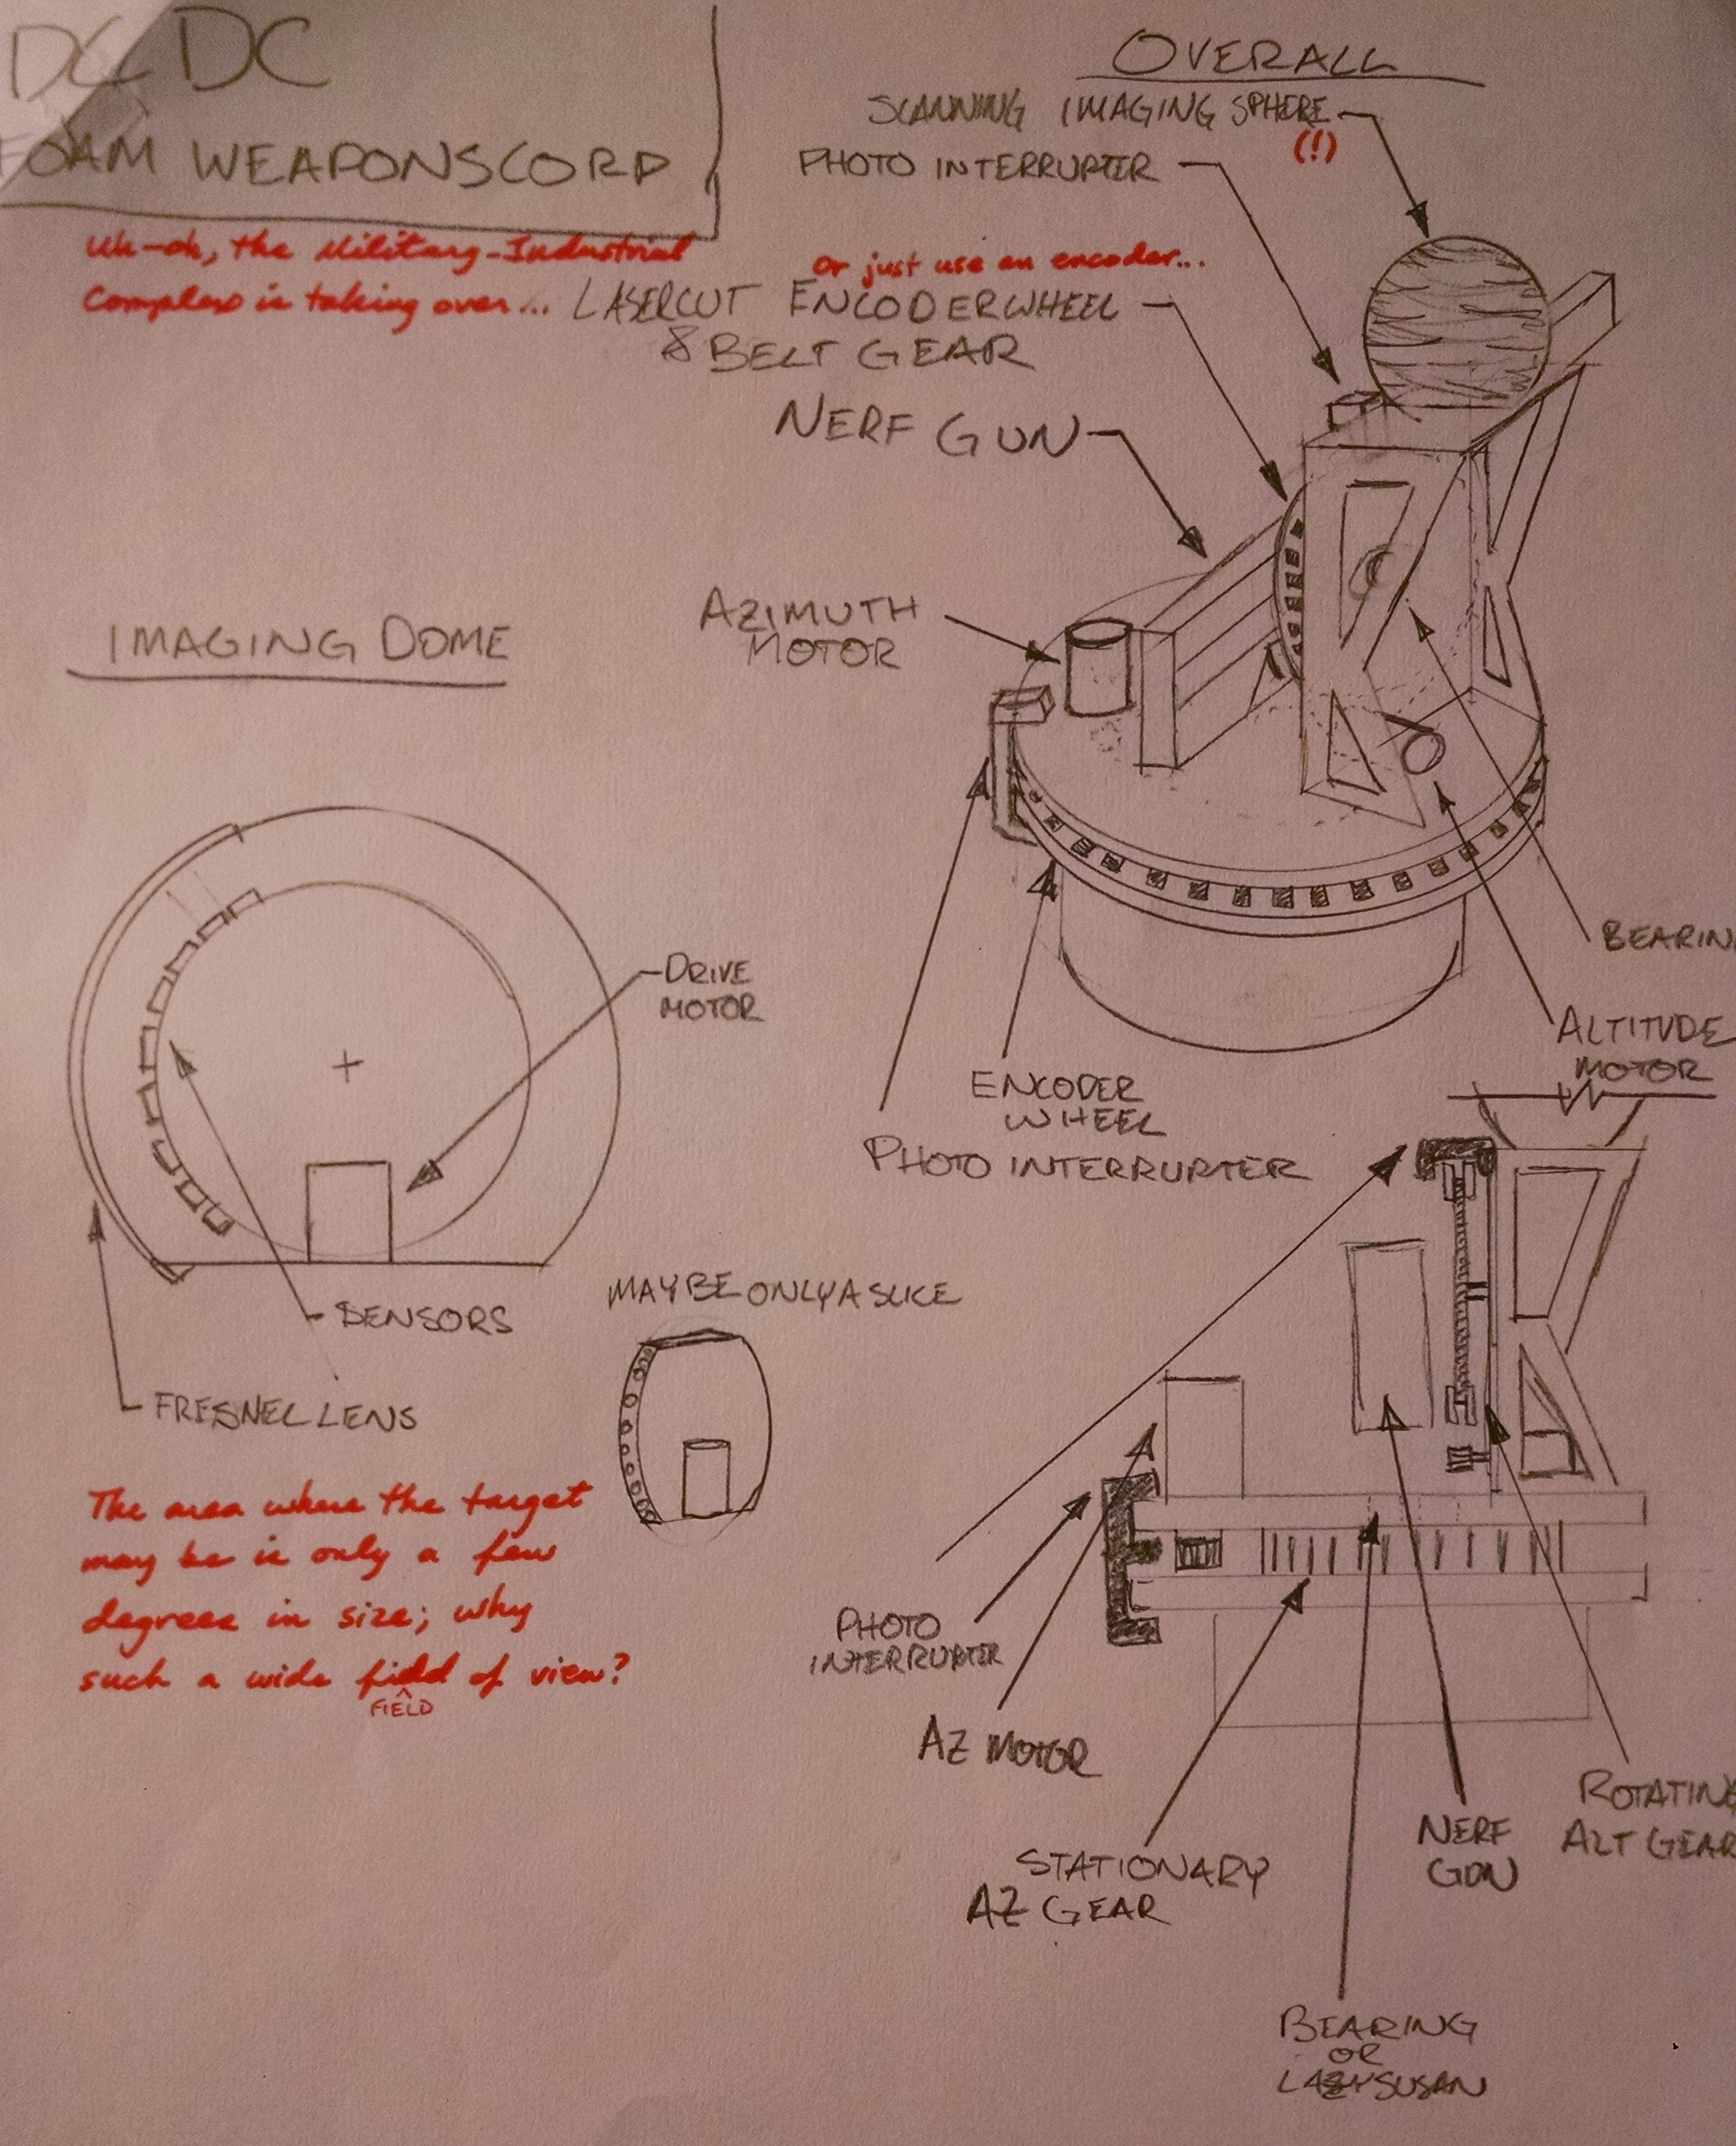 DC DC
FOAM WEAPONSCORP
Uh-oh, the Military-Industrial
Complex is taking over...
OVERALL
SCANNING IMAGING SPHERE
(!)
PHOTO INTERRUPTER
Or just use an encoder...
LASERCUT ENCODERWHEEL
& BELT GEAR
NERF GUN
AZIMUTH
MOTOR
BEARIN
ALTITUDE
MOTOR
ENCODER
WHEEL
PHOTO INTERRUPTER
IMAGING DOME
DRIVE
MOTOR
SENSORS
FRESNEL LENS
MAYBE ONLY A SLICE
The area where the target
may be is only a few
degrees in size; why
such a wide field of view?
FIELD
PHOTO
INTERRUPTER
AZ MOTOR
STATIONARY
AZ GEAR
BEARING
OR
LAZY SUSAN
NERF
GUN
ROTATING
ALT GEAR